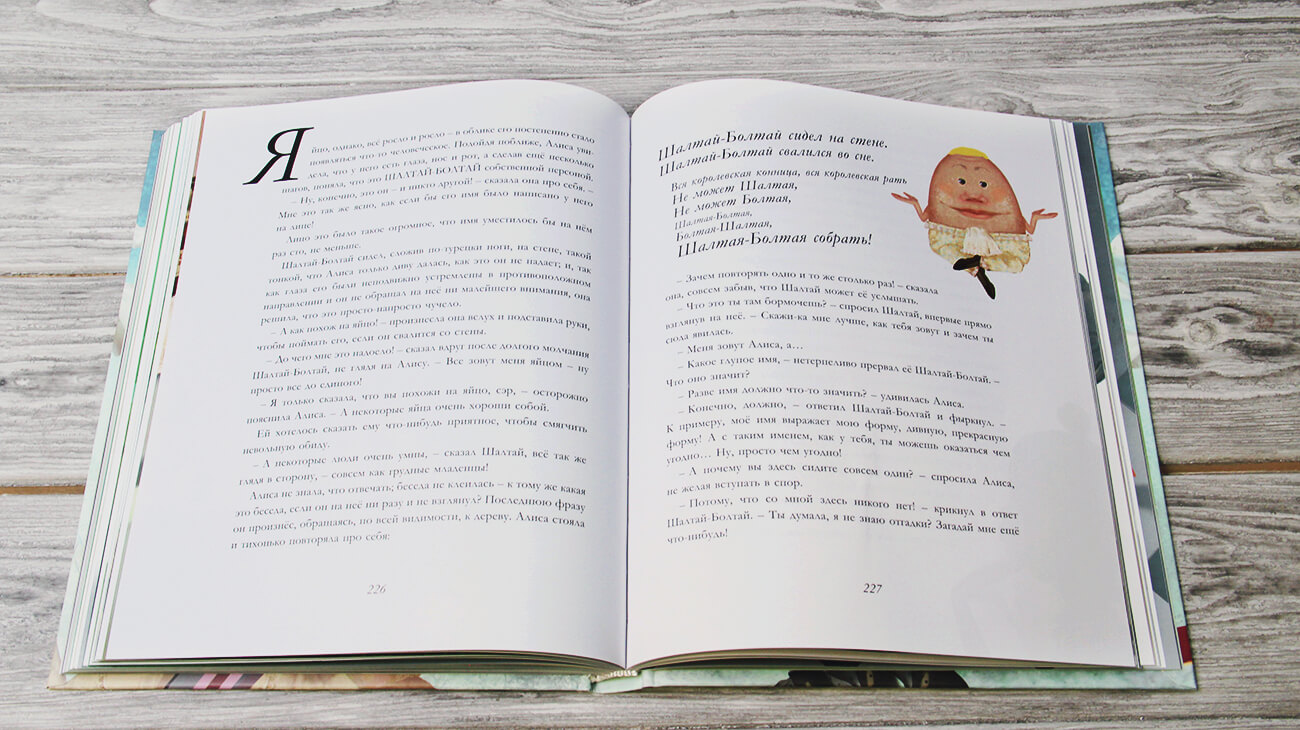 Яйцо, однако, всё росло и росло – в облике его постепенно стало
появляться что-то человеческое. Подойдя поближе, Алиса уви-
дела, что у него есть глаза, нос и рот, а сделав ещё несколько
шагов, поняла, что это ШАЛТАЙ-БОЛТАЙ собственной персоной.
– Ну, конечно, это он – и никто другой! – сказала она про себя. –
Мне это так же ясно, как если бы его имя было написано у него
на лице!
Лицо это было такое огромное, что имя уместилось бы на нём
раз сто, не меньше.
Шалтай-Болтай сидел, сложив по-турецки ноги, на стене, такой
тонкой, что Алиса только диву далась, как это он не падает; и, так
как глаза его были неподвижно устремлены в противоположном
направлении и он не обращал на неё ни малейшего внимания, она
решила, что это просто-напросто чучело.
– А как похож на яйцо! – произнесла она вслух и подставила руки,
чтобы поймать его, если он свалится со стены.
– До чего мне это надоело! – сказал вдруг после долгого молчания
Шалтай-Болтай, не глядя на Алису. – Все зовут меня яйцом – ну
просто все до единого!
– Я только сказала, что вы похожи на яйцо, сэр, – осторожно
пояснила Алиса. – А некоторые яйца очень хороши собой.
Ей хотелось сказать ему что-нибудь приятное, чтобы смягчить
невольную обиду.
– А некоторые люди очень умны, – сказал Шалтай, всё так же
глядя в сторону, – совсем как грудные младенцы!
Алиса не знала, что отвечать; беседа не клеилась – к тому же какая
это беседа, если он на неё ни разу и не взглянул? Последнюю фразу
он произнес, обращаясь, по всей видимости, к дереву. Алиса стояла
и тихонько повторяла про себя:
226
Шалтай-Болтай сидел на стене.
Шалтай-Болтай свалился во сне.
Вся королевская конница, вся королевская рать
Не может Шалтая,
Не может Болтая,
Шалтая-Болтая,
Болтая-Шалтая,
Шалтая-Болтая собрать!
– Зачем повторять одно и то же столько раз! – сказала
она, совсем забыв, что Шалтай может её услышать.
– Что это ты там бормочешь? – спросил Шалтай, впервые прямо
взглянув на неё. – Скажи-ка мне лучше, как тебя зовут и зачем ты
сюда явилась.
– Меня зовут Алиса, а…
– Какое глупое имя, – нетерпеливо прервал её Шалтай-Болтай. –
Что оно значит?
– Разве имя должно что-то значить? – удивилась Алиса.
– Конечно, должно, – ответил Шалтай-Болтай и фыркнул. –
К примеру, моё имя выражает мою форму, дивную, прекрасную
форму! А с таким именем, как у тебя, ты можешь оказаться чем
угодно… Ну, просто чем угодно!
– А почему вы здесь сидите совсем один? – спросила Алиса,
не желая вступать в спор.
– Потому, что со мной здесь никого нет! – крикнул в ответ
Шалтай-Болтай. – Ты думала, я не знаю отгадки? Загадай мне ещё
что-нибудь!
227